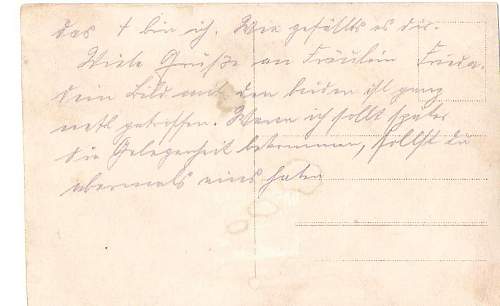 das + bin ich. Wie gefällts es dir.
Viele Grüße an Fräulein Frieda.
dein Bild mit den beiden ist ganz
nett getroffen. Wenn ich sollt später
die Gelegenheit bekommen, sollst du
abermals eins haben